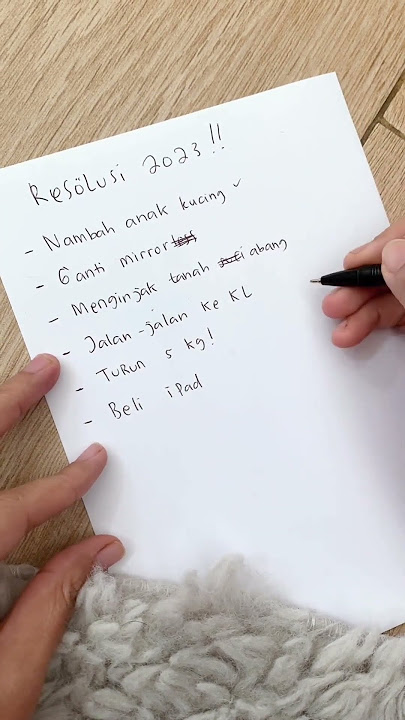 Resolusi 2023 !!
- Nambah anak kucing ✓
- Ganti mirror less
- Menginjak tanah abang
- Jalan-jalan ke KL
- Turun 5 kg!
- Beli iPad